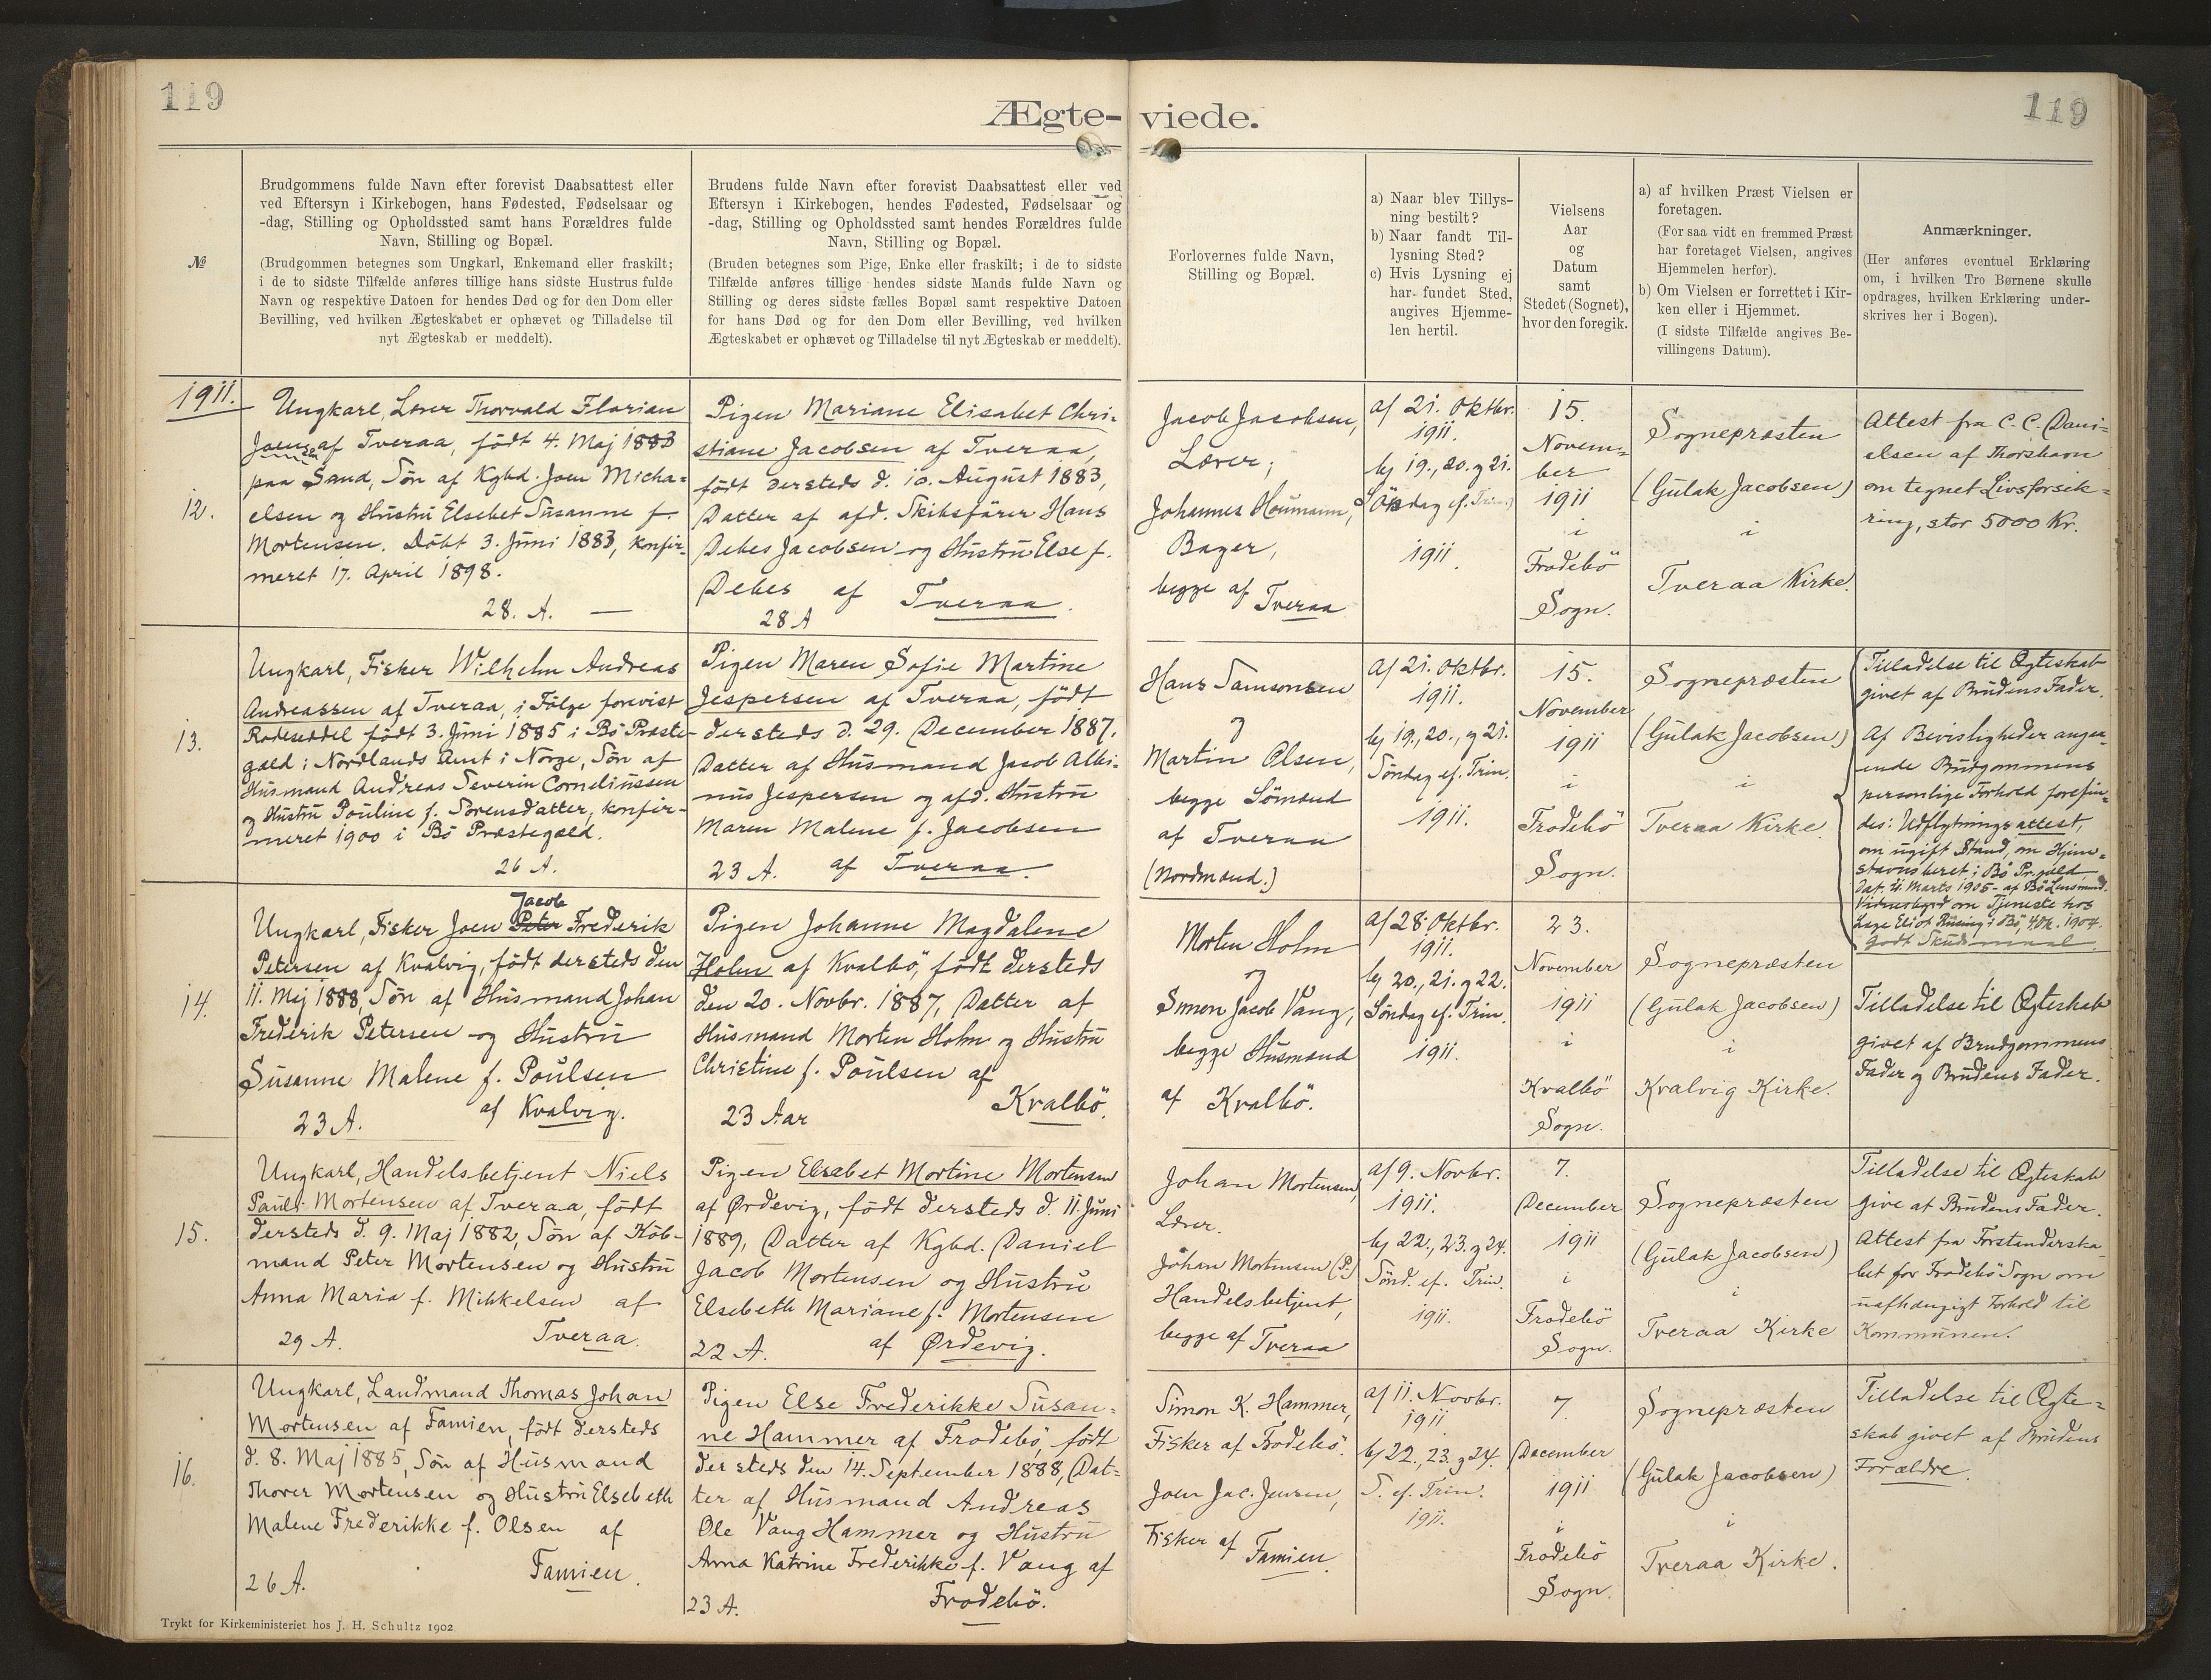 119
119
Ægte-viede.
№
Brudgommens fulde Navn efter forevist Daabsattest eller
ved Eftersyn i Kirkebogen, hans Fødested, Fødselsaar og
-dag, Stilling og Opholdssted samt hans Forældres fulde
Navn, Stilling og Bopæl.
(Brudgommen betegnes som Ungkarl, Enkemand eller fraskilt;
i de to sidste Tilfælde anføres tillige hans sidste Hustrus fulde
Navn og respektive Datoen for hendes Død og for den Dom eller
Bevilling, ved hvilken Ægteskabet er ophævet og Tilladelse til
nyt Ægteskab er meddelt).
Brudens fulde Navn efter forevist Daabsattest eller ved
Eftersyn i Kirkebogen, hendes Fødested, Fødselsaar og
-dag, Stilling og Opholdssted samt hendes Forældres fulde
Navn, Stilling og Bopæl.
(Bruden betegnes som Pige, Enke eller fraskilt; i de to sidste
Tilfælde anføres tillige hendes sidste Mands fulde Navn og
Stilling og deres sidste fælles Bopæl samt respektive Datoen
for hans Død og for den Dom eller Bevilling, ved hvilken
Ægteskabet er ophævet og Tilladelse til nyt Ægteskab er meddelt).
Forlovernes fulde Navn,
Stilling og Bopæl.
a) Naar blev Tillys-
ning bestilt?
b) Naar fandt Til-
lysning Sted?
c) Hvis Lysning ej
har fundet Sted,
angives Hjemme-
len hertil.
Vielsens
Aar
og
Datum
samt
Stedet (Sognet),
hvor den foregik.
a) af hvilken Præst Vielsen er
foretagen.
(For saa vidt en fremmed Præst
har foretaget Vielsen, angives
Hjemmelen herfor).
b) Om Vielsen er forrettet i Kir-
ken eller i Hjemmet.
(I sidste Tilfælde angives Be-
villingens Datum).
Anmærkninger.
(Her anføres eventuel Erklæring
om, i hvilken Tro Børnene skulle
opdrages, hvilken Erklæring under-
skrives her i Bogen).
1911.
12.
Ungkarl, Lærer Thorvald Florian
Joensen af Tveraa, født 4. Maj 1883
paa Sand, Søn af Kgbd. Joen Micha=
elsen og Hustru Elsebet Susanne f.
Mortensen. Döbt 3. Juni 1883, konfir-
meret 17. April 1898.
28. A. —
Pigen Mariane Elisabet Chri-
stiane Jacobsen af Tveraa,
født dersteds d. 10. August 1883,
Datter af afd. Skibsfører Hans
Debes Jacobsen og Hustru Else f.
Debes af Tveraa.
28 A
Jacob Jacobsen,
Lærer;
Johannes Houmann,
Bager,
begge af Tveraa
a) 21. Oktbr.
1911.
b) 19., 20. og 21.
Söndag ef. Trin.
1911.
15.
Novem=
ber
1911
i
Frodebö
Sogn.
Sognepræsten
(Gulak Jacobsen)
i
Tveraa Kirke.
Attest fra C. C. Dani=
elsen af Thorshavn
om tegnet Livsforsik=
ring, stor 5000 Kr.
13.
Ungkarl, Fisker Wilhelm Andreas
Andreassen af Tveraa, i Følge forevist
Rodeseddel født 3. Juni 1885 i Bö Præste-
gæld i Nordlands Amt i Norge, Søn af
Husmand Andreas Severin Corneliussen
og Hustru Pouline f. Sorensdatter, konfir-
meret 1900 i Bö Præstegæld.
26 A.
Pigen Maren Sofie Martine
Jespersen af Tveraa, født
dersteds d. 29. December 1887,
Datter af Husmand Jacob Albi-
nus Jespersen og afd. Hustru
Maren Malene f. Jacobsen
23 A. af Tveraa.
Hans Samsonsen
og
Martin Olsen,
begge Sömænd
af Tveraa
(Nordmænd.)
a) 21. Oktbr.
1911.
b) 19., 20., og 21.
Söndag ef. Trin.
1911.
15.
November
1911
i
Frodebö
Sogn.
Sognepræsten
(Gulak Jacobsen)
i
Tveraa Kirke.
Tilladelse til Ægteskab
givet af Brudens Fader.
Af Bevisligheder angaa-
ende Brudgommens
personlige Forhold forefin=
des: Udflytningsattest,
om ugift Stand, om Hjem=
stavnsberet. i Bö Pr.gæld
dat. 21. Marts 1905 - af Bö Lensmand.
Vidnesbyrd om Tjeneste hos
godt Skudsmaal.
14.
Jacob
Ungkarl, Fisker Joen Peter Frederik
Petersen af Kvalvig, født dersteds den
11. Maj 1888, Søn af Husmand Johan
Frederik Petersen og Hustru
Susanne Malene f. Poulsen
af Kvalvig.
23 A.
Pigen Johanne Magdalene
Holm af Kvalbö, født dersteds
den 20. Novbr. 1887, Datter af
Husmand Morten Holm og Hustru
Christine f. Poulsen af
Kvalbö.
23 Aar
Morten Holm
og
Simon Jacob Vang,
begge Husmænd
af Kvalbö.
a) 28. Oktbr.
1911.
b) 20., 21. og 22.
Söndag ef. Trin.
1911.
23.
November
1911
i
Kvalbö
Sogn.
Sognepræsten
(Gulak Jacobsen)
i
Kvalvig Kirke.
Tilladelse til Ægteskab
givet af Brudgommens
Fader og Brudens Fader.
15.
Ungkarl, Handelsbetjent Niels
Pauli Mortensen af Tveraa, født
dersteds d. 9. Maj 1882, Søn af Köb-
mand Peter Mortensen og Hustru
Anna Maria f. Mikkelsen af
29 A. Tveraa.
Pigen Elsebet Mortine Mortensen
af Ørdevig, født dersteds d. 11. Juni
1889, Datter af Kgbd. Daniel
Jacob Mortensen og Hustru
Elsebeth Mariane f. Mortensen
22 A. af Ørdevig.
Johan Mortensen,
Lærer.
Johan Mortensen (P.)
Handelsbetjent,
begge af Tveraa
a) 9. Novbr.
1911.
b) 22., 23. og 24.
Sönd. ef. Trin.
1911.
7.
December
1911
i
Frodebö
Sogn.
Sognepræsten
(Gulak Jacobsen)
i
Tveraa Kirke
Tilladelse til Ægteskab
give at Brudens Fader.
Attest fra Forstanderska-
bet for Frodebö Sogn om
uafhængigt Forhold til
Kommunen.
16.
Ungkarl, Landmand Thomas Johan
Mortensen af Famien, født dersteds
d. 8. Maj 1885, Søn af Husmand
Thorer Mortensen og Hustru Elsebeth
Malene Frederikke f. Olsen af
26 A. Famien.
Pigen Else Frederikke Susan=
ne Hammer af Frodebö, født
dersteds den 14. September 1888, Dat=
ter af Husmand Andreas
Ole Vang Hammer og Hustru
Anna Katrine Frederikke f. Vang af
23 A. Frodebö.
Simon K. Hammer,
Fisker af Frodebö.
Joen Jac. Jensen,
Fisker af Famien.
a) 11. Novbr.
1911
b) 22., 23. og 24.
S. ef. Trin.
1911.
7.
December
1911
i
Frodebö
Sogn.
Sognepræsten
(Gulak Jacobsen)
i
Tveraa Kirke.
Tilladelse til Ægte=
skab givet af Brudens
Forældre.
Trykt for Kirkeministeriet hos J. H. Schultz 1902.